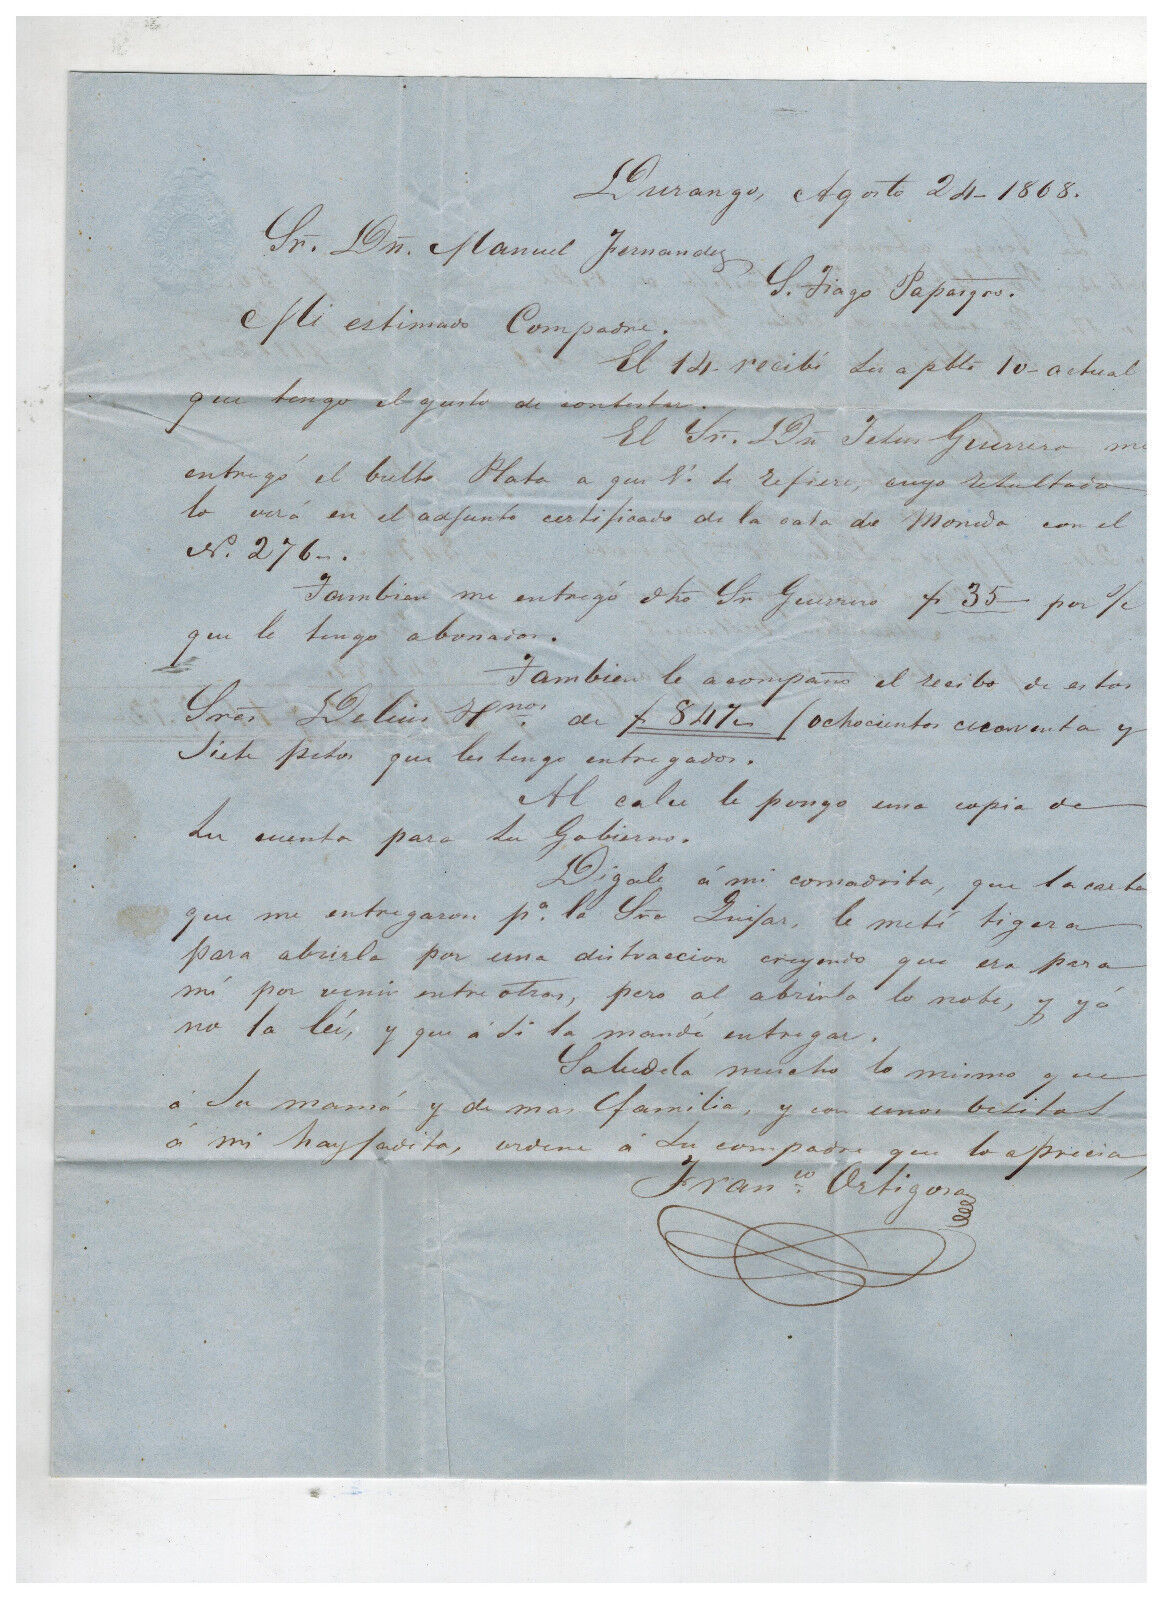 Durango, Agosto 24-1868.
Sr. Dn. Manuel Fernandez
S. Tiago Papasqro.
Mi estimado Compadre.
El 14 recibí su apble 10- actual
que tengo el gusto de contestar.
El Sr. Dn Jesus Guerrero me
entregó el bulto Plata a que V. se refiere, cuyo resultado
lo verá en el adjunto certificado de la casa de Moneda con el
N. 276-.
Tambien me entregó dho Sr Guerrero $ 35 por s/c
que le tengo abonados.
Tambien le acompaño el recibo de estos
Sres Delius Hmnos. de $ 847- (ochocientos cuarenta y
siete pesos que les tengo entregados.
Al calce le pongo una copia de
su cuenta para su Gobierno.
Digale á mi comadrita, que la carta
que me entregaron pa. la Sra, le metí tigera
para abrirla por una distraccion creyendo que era para
mí por venir entre otras, pero al abrirla lo noté, y yá
no la leí, y que á si la mandé entregar.
Saludela mucho lo mismo que
á su mamá y demas familia, y con unos besitos
á mi hayjadita, ordene á su compadre que lo aprecia,
Franco. Ortigosa